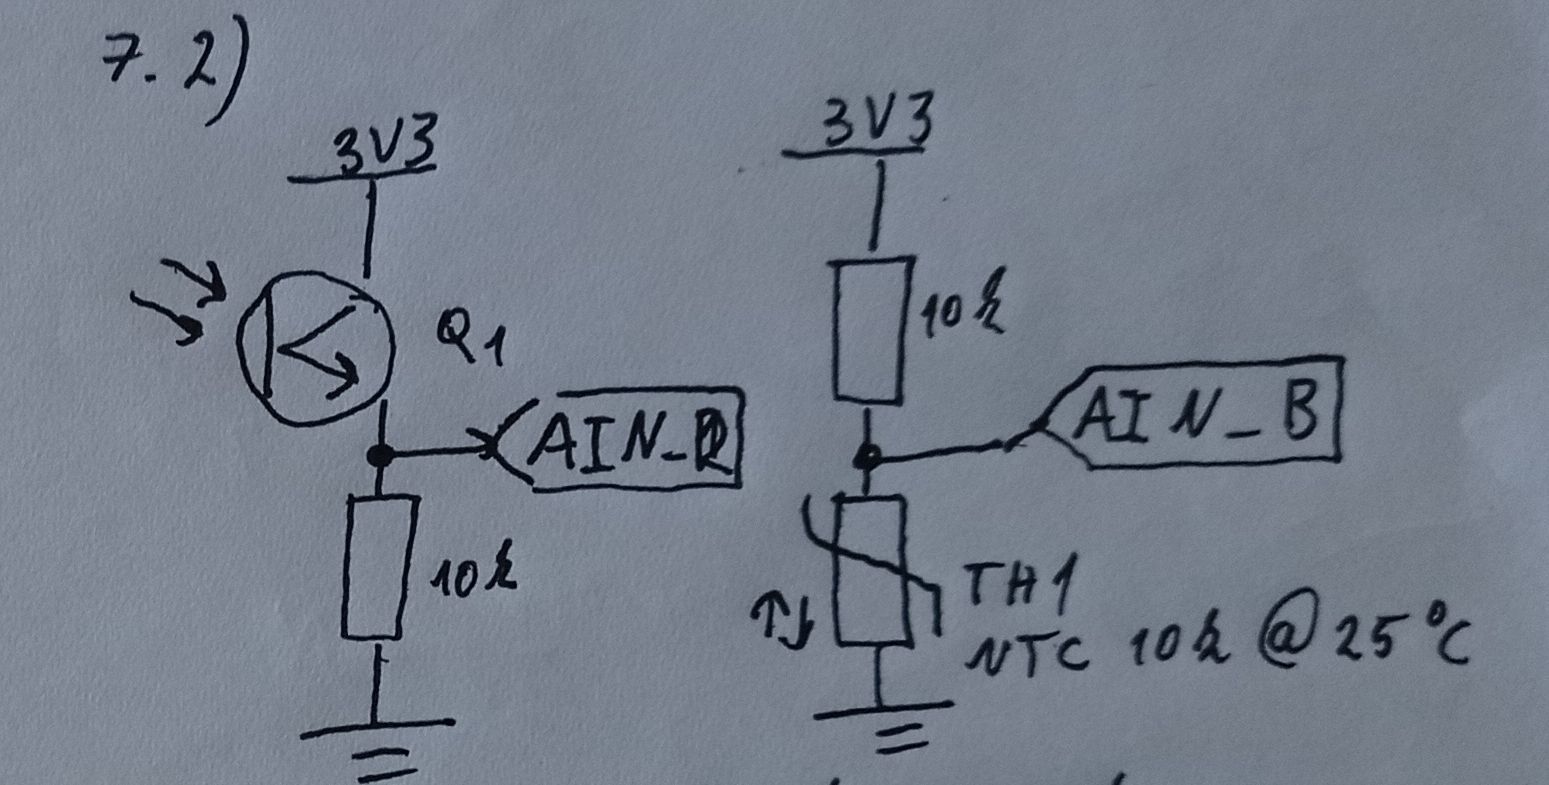 7.2)
3V3
Q1
10k
3V3
10k
AIN_B
TH1
NTC 10k @ 25°C